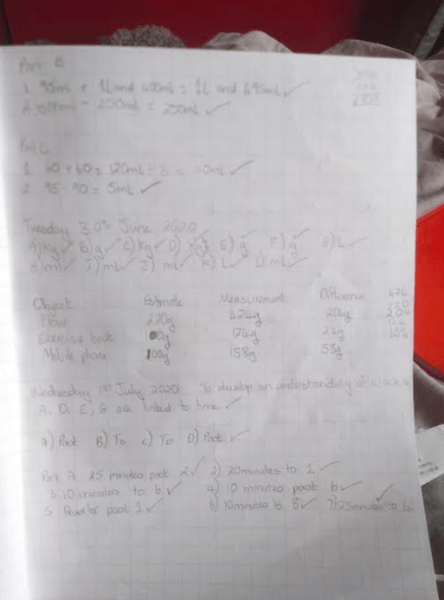 Part B
1. 95mL + 1L and 400mL = 1L and 495mL
2. 500mL - 250mL = 250mL
Part C
1. 60 + 60 = 120mL
2. 95 - 90 = 5mL
Tuesday 30th June 2020
A) Kg B) g C) Kg D) Kg E) g F) g G) L
H) mL I) mL J) mL K) L L) mL
Object Estimate Measurement Difference
Flour 220g 424g 204g
Exercise book 100g 124g 24g
Mobile phone 100g 158g 58g
Wednesday 1st July 2020 To develop an understanding of
A, D, E, G are linked to time
A) Past B) To C) To D) Past
Part A: 25 minutes past 2 2) 20 minutes to 1
3. 10 minutes to 6 4) 10 minutes past 6
5. Quarter past 1 6) 10 minutes to 8 7) 25 minutes to